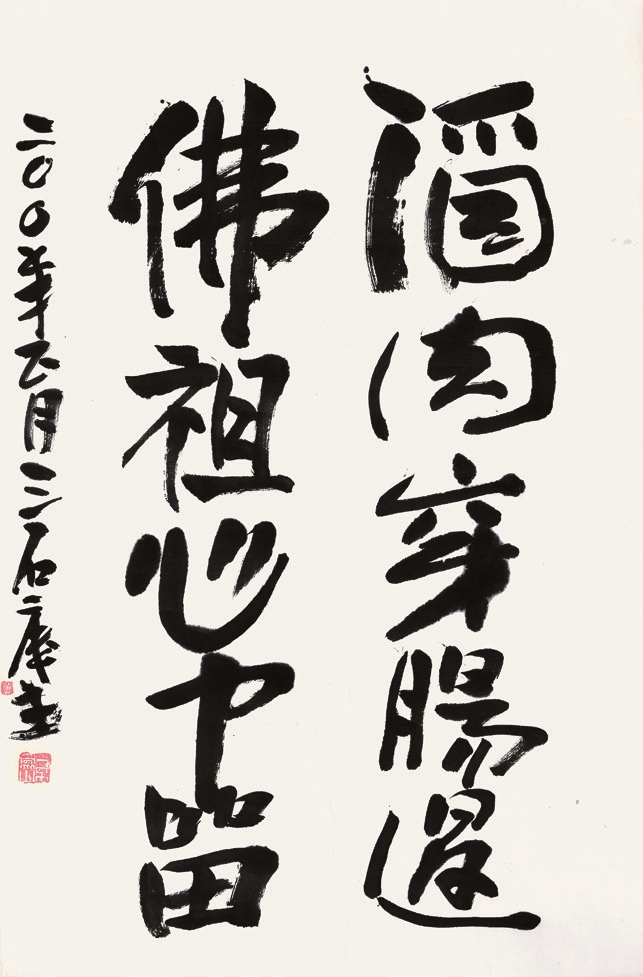 酒肉穿腸過
佛祖心中留
二〇〇〇年正月三石二庵書